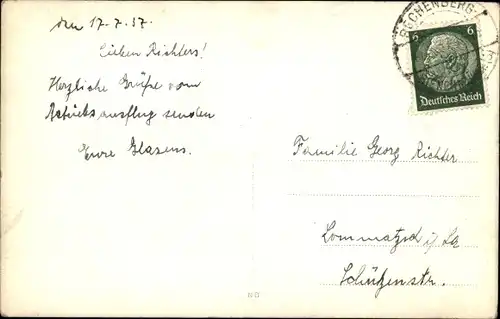 den 17.7.37.
Lieben Richters!
Herzliche Grüße vom
Betriebsausflug senden
Eure Glasens.
Familie Georg Richter
Lommatzsch i/Sa
Schützenstr.
6 6
Deutsches Reich